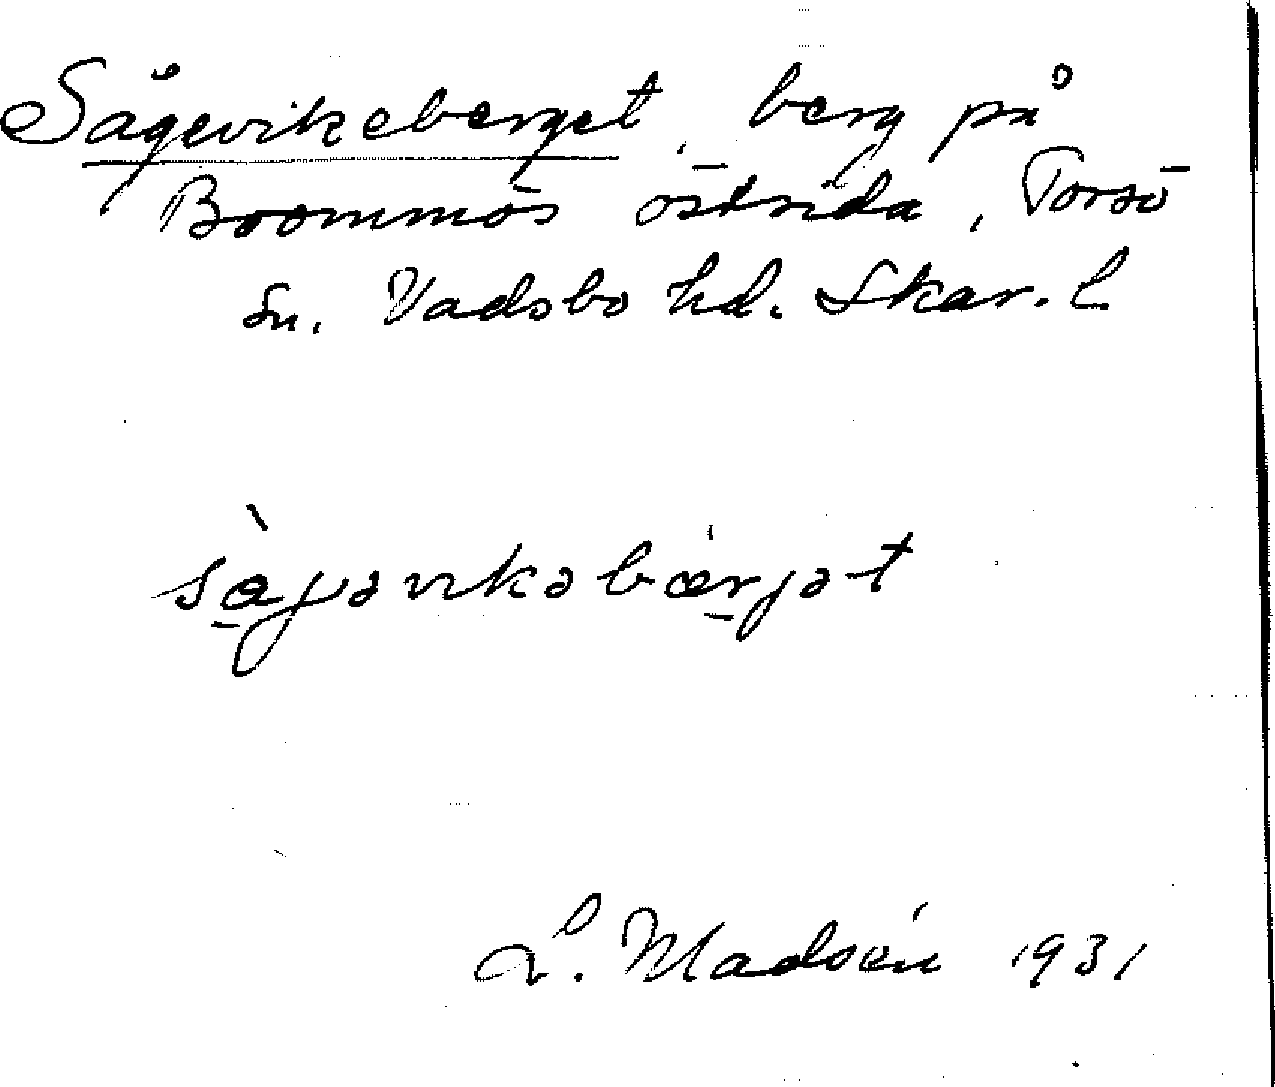 Sågevikeberget, berg på
Brommös östsida, Torsö
sn. Vadsbo hd. Skar. l.
L. Madsén 1931